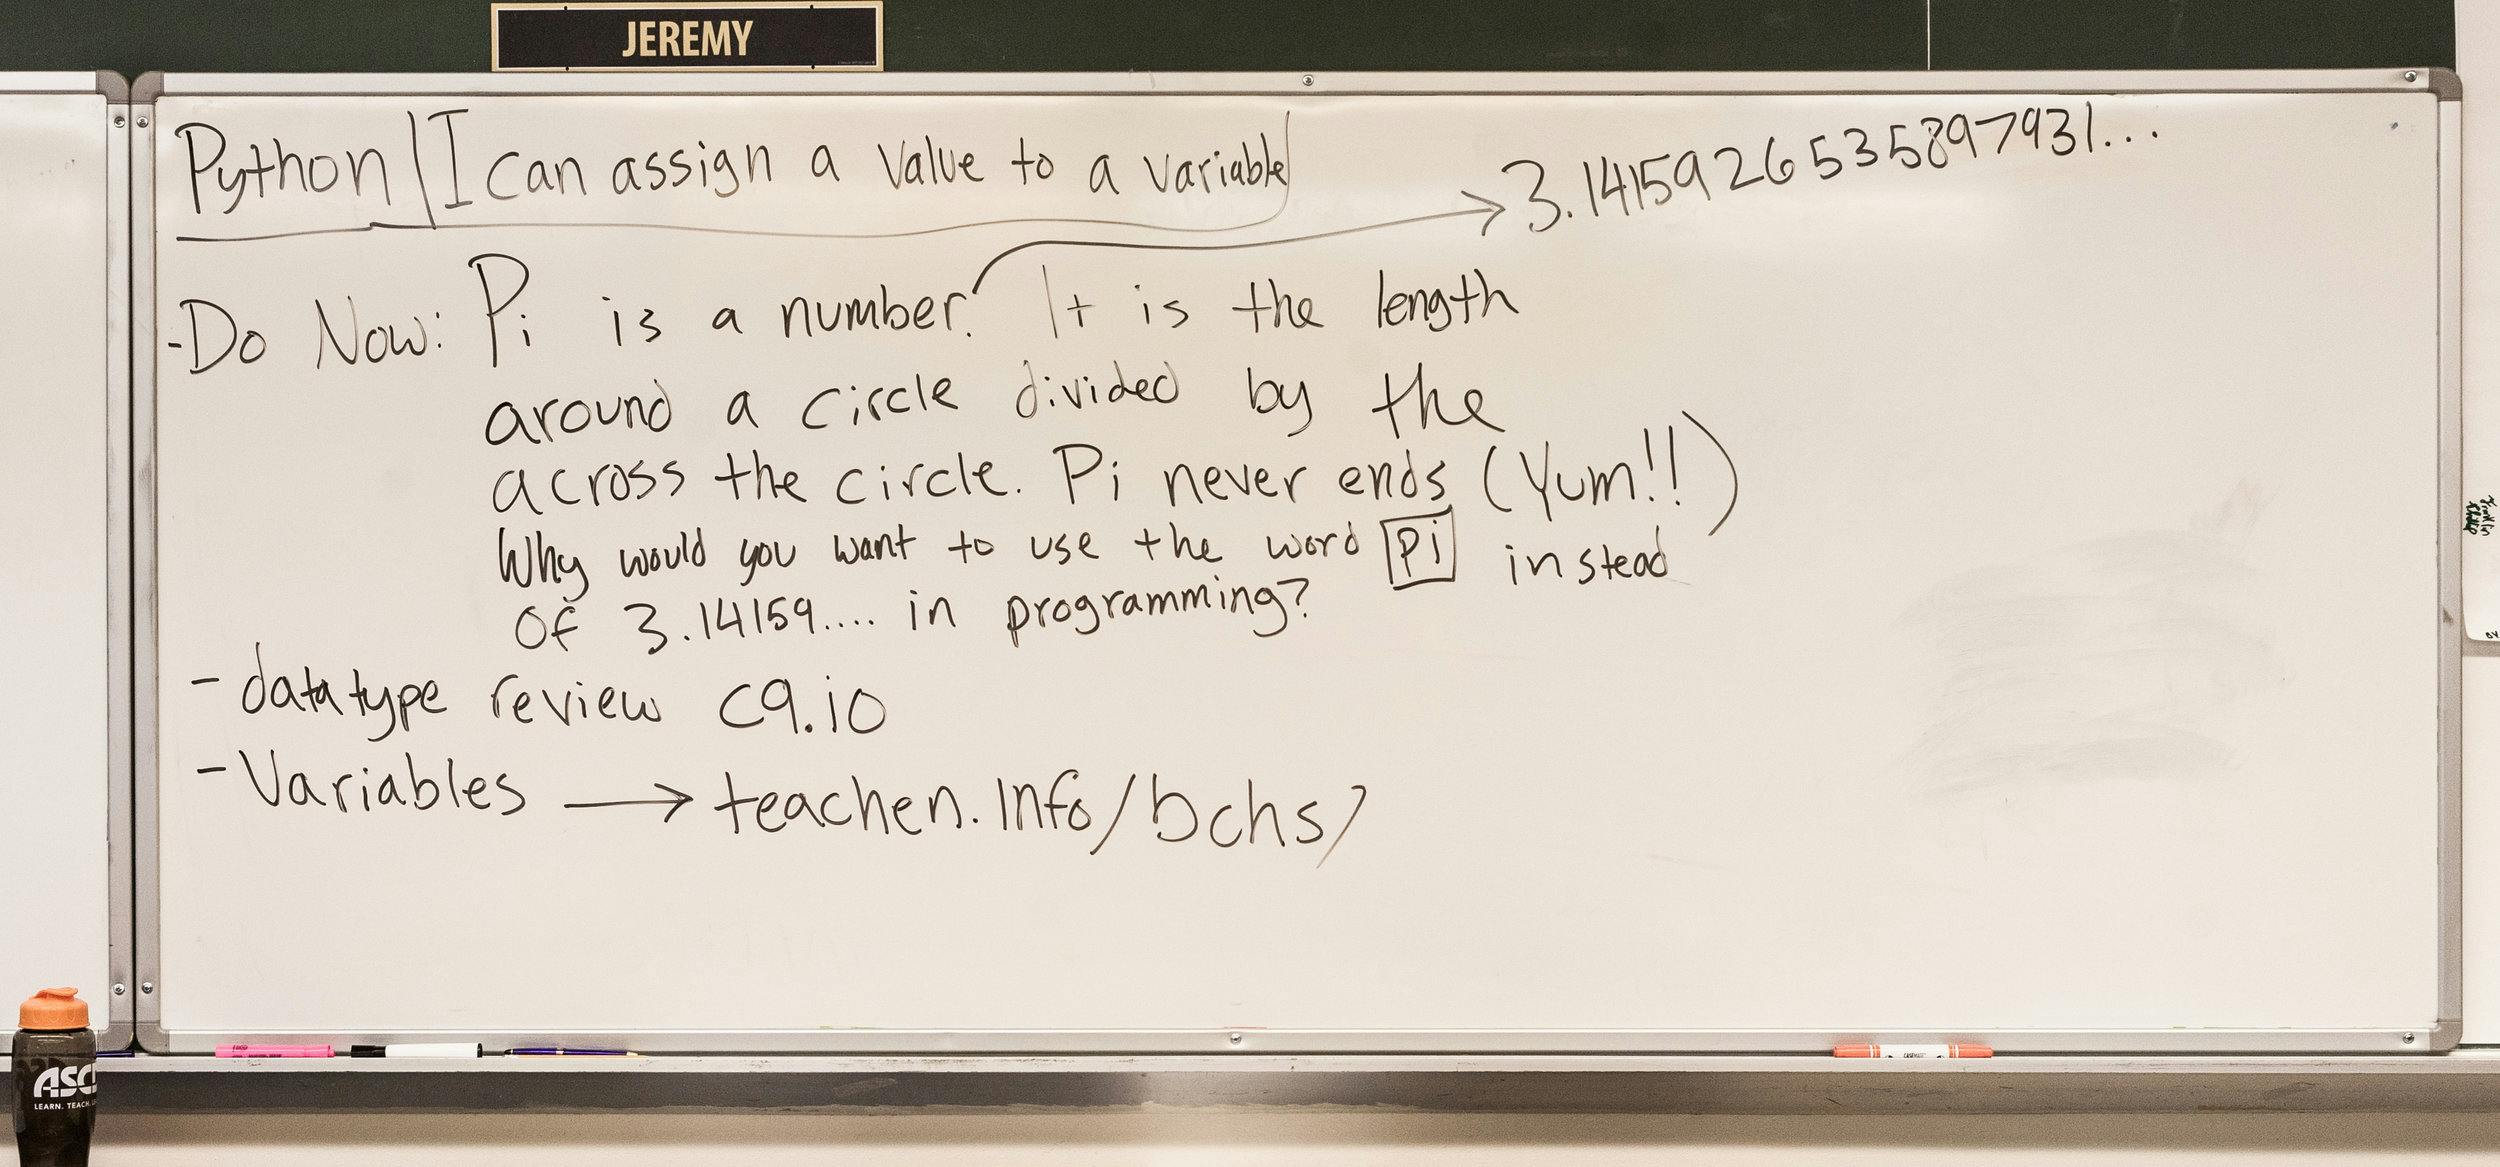 JEREMY
Python | I can assign a value to a variable
3.1415926535897931...
-Do Now: Pi is a number. It is the length
around a circle divided by the
across the circle. Pi never ends (Yum!!)
Why would you want to use the word pi instead
of 3.14159.... in programming?
- datatype review c9.io
- Variables → teachen.info/bchs/
ASC
LEARN. TEACH.